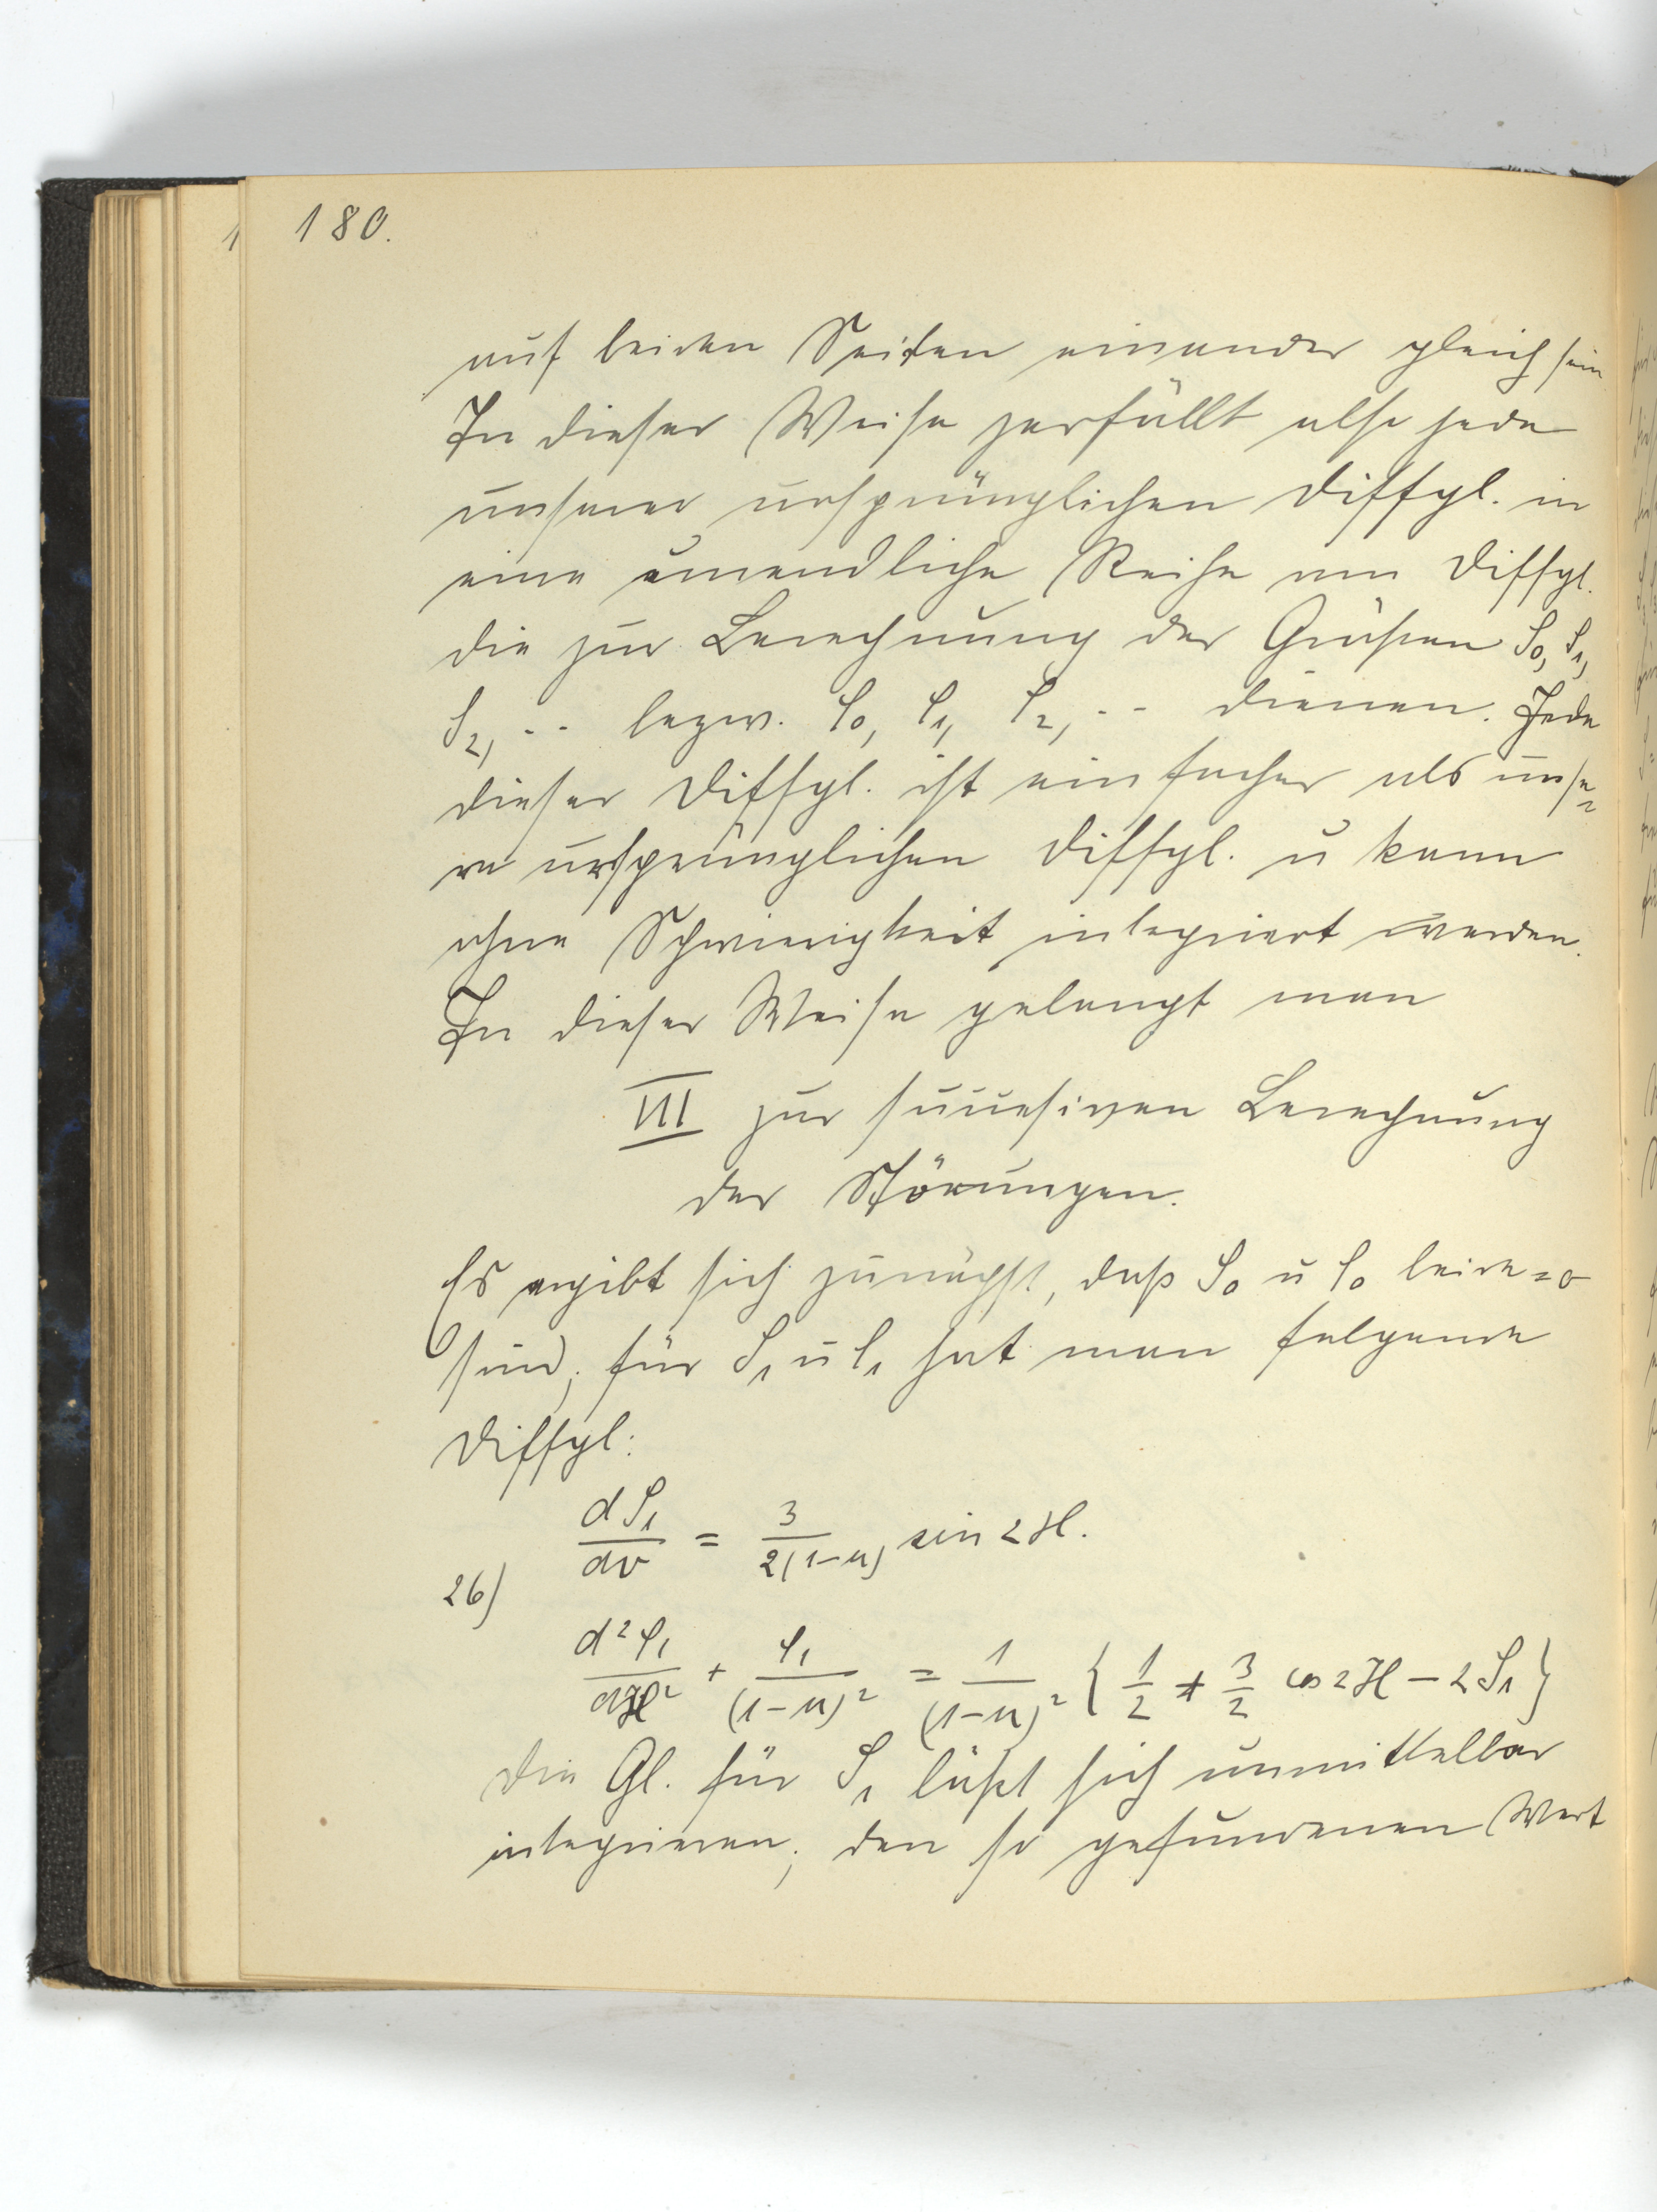 180.
auf beiden Seiten einander gleich sein
In dieser Weise zerfällt also jede
unserer ursprünglichen Diffgl. in
eine unendliche Reihe von Diffgl.
die zur Berechnung der Größen S₀, S₁,
S₂, .. bezw. ρ₀, ρ₁, ρ₂, .. dienen. Jede
dieser Diffgl. ist einfacher als unse=
re ursprünglichen Diffgl. u kann
ohne Schwierigkeit integriert werden.
In dieser Weise gelangt man
VII zur successiven Berechnung
der Störungen.
Es ergibt sich zunächst, daß S₀ u ρ₀ beide = 0
sind; für S₁ u ρ₁ hat man folgende
Diffgl:
dS₁/dv = 3/2(1-μ) sin 2H.
26)
d²ρ₁/dH² + ρ₁/(1-μ)² = 1/(1-μ)² { 1/2 + 3/2 cos 2H - 2S₁ }
Die Gl. für S₁ läßt sich unmittelbar
integrieren; den so gefundenen Wert